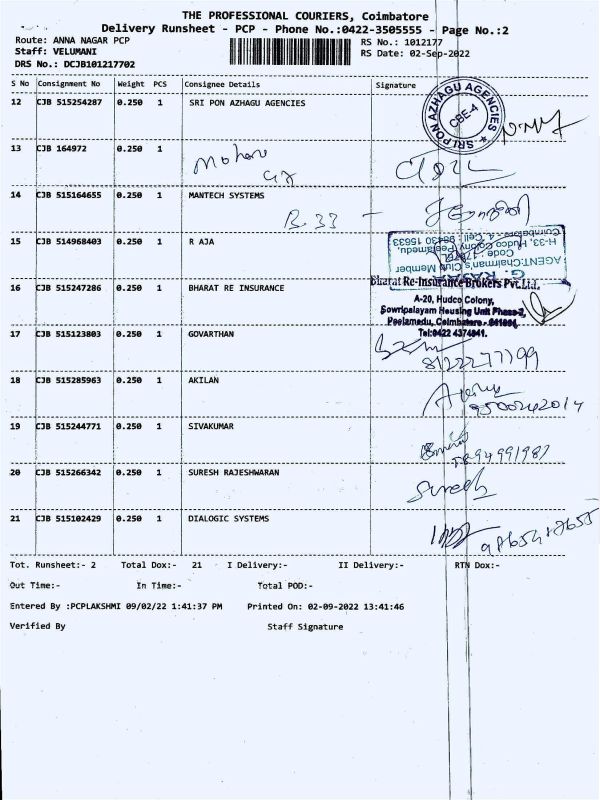 THE PROFESSIONAL COURIERS, Coimbatore
Delivery Runsheet - PCP - Phone No.:0422-3505555 - Page No.:2
Route: ANNA NAGAR PCP
RS No.: 1012177
Staff: VELUMANI
RS Date: 02-Sep-2022
DRS No.: DCJB101217702
S No Consignment No Weight PCS Consignee Details Signature
12 CJB 515254287 0.250 1 SRI PON AZHAGU AGENCIES
SRI PON AZHAGU AGENCIES
CBE-4
13 CJB 164972 0.250 1
14 CJB 515164655 0.250 1 MANTECH SYSTEMS
B.33 -
15 CJB 514968403 0.250 1 R AJA
AGENT:Chairman's Club Member
H-33, Hudco Colony, Peelamedu,
Coimbatore - 4. Cell: 98430 15633
16 CJB 515247286 0.250 1 BHARAT RE INSURANCE
Bharat Re-Insurance Brokers Pvt.Ltd.
A-20, Hudco Colony,
Sowripalayam Housing Unit Phase-2,
Peelamedu, Coimbatore - 641004.
Tel:0422 4374041.
17 CJB 515123803 0.250 1 GOVARTHAN
8122277199
18 CJB 515285963 0.250 1 AKILAN
9500242014
19 CJB 515244771 0.250 1 SIVAKUMAR
20 CJB 515266342 0.250 1 SURESH RAJESHWARAN
Suresh
21 CJB 515102429 0.250 1 DIALOGIC SYSTEMS
Tot. Runsheet:- 2 Total Dox:- 21 I Delivery:- II Delivery:- RTN Dox:-
Out Time:- In Time:- Total POD:-
Entered By :PCPLAKSHMI 09/02/22 1:41:37 PM Printed On: 02-09-2022 13:41:46
Verified By Staff Signature